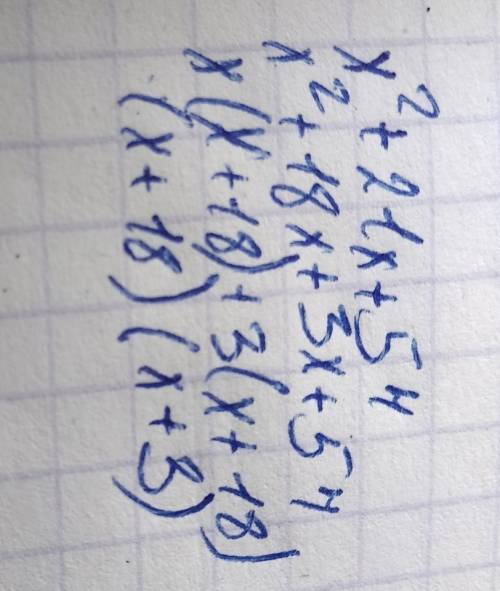 x² + 21x + 54
x² + 18x + 3x + 54
x(x + 18) + 3(x + 18)
(x + 18) (x + 3)